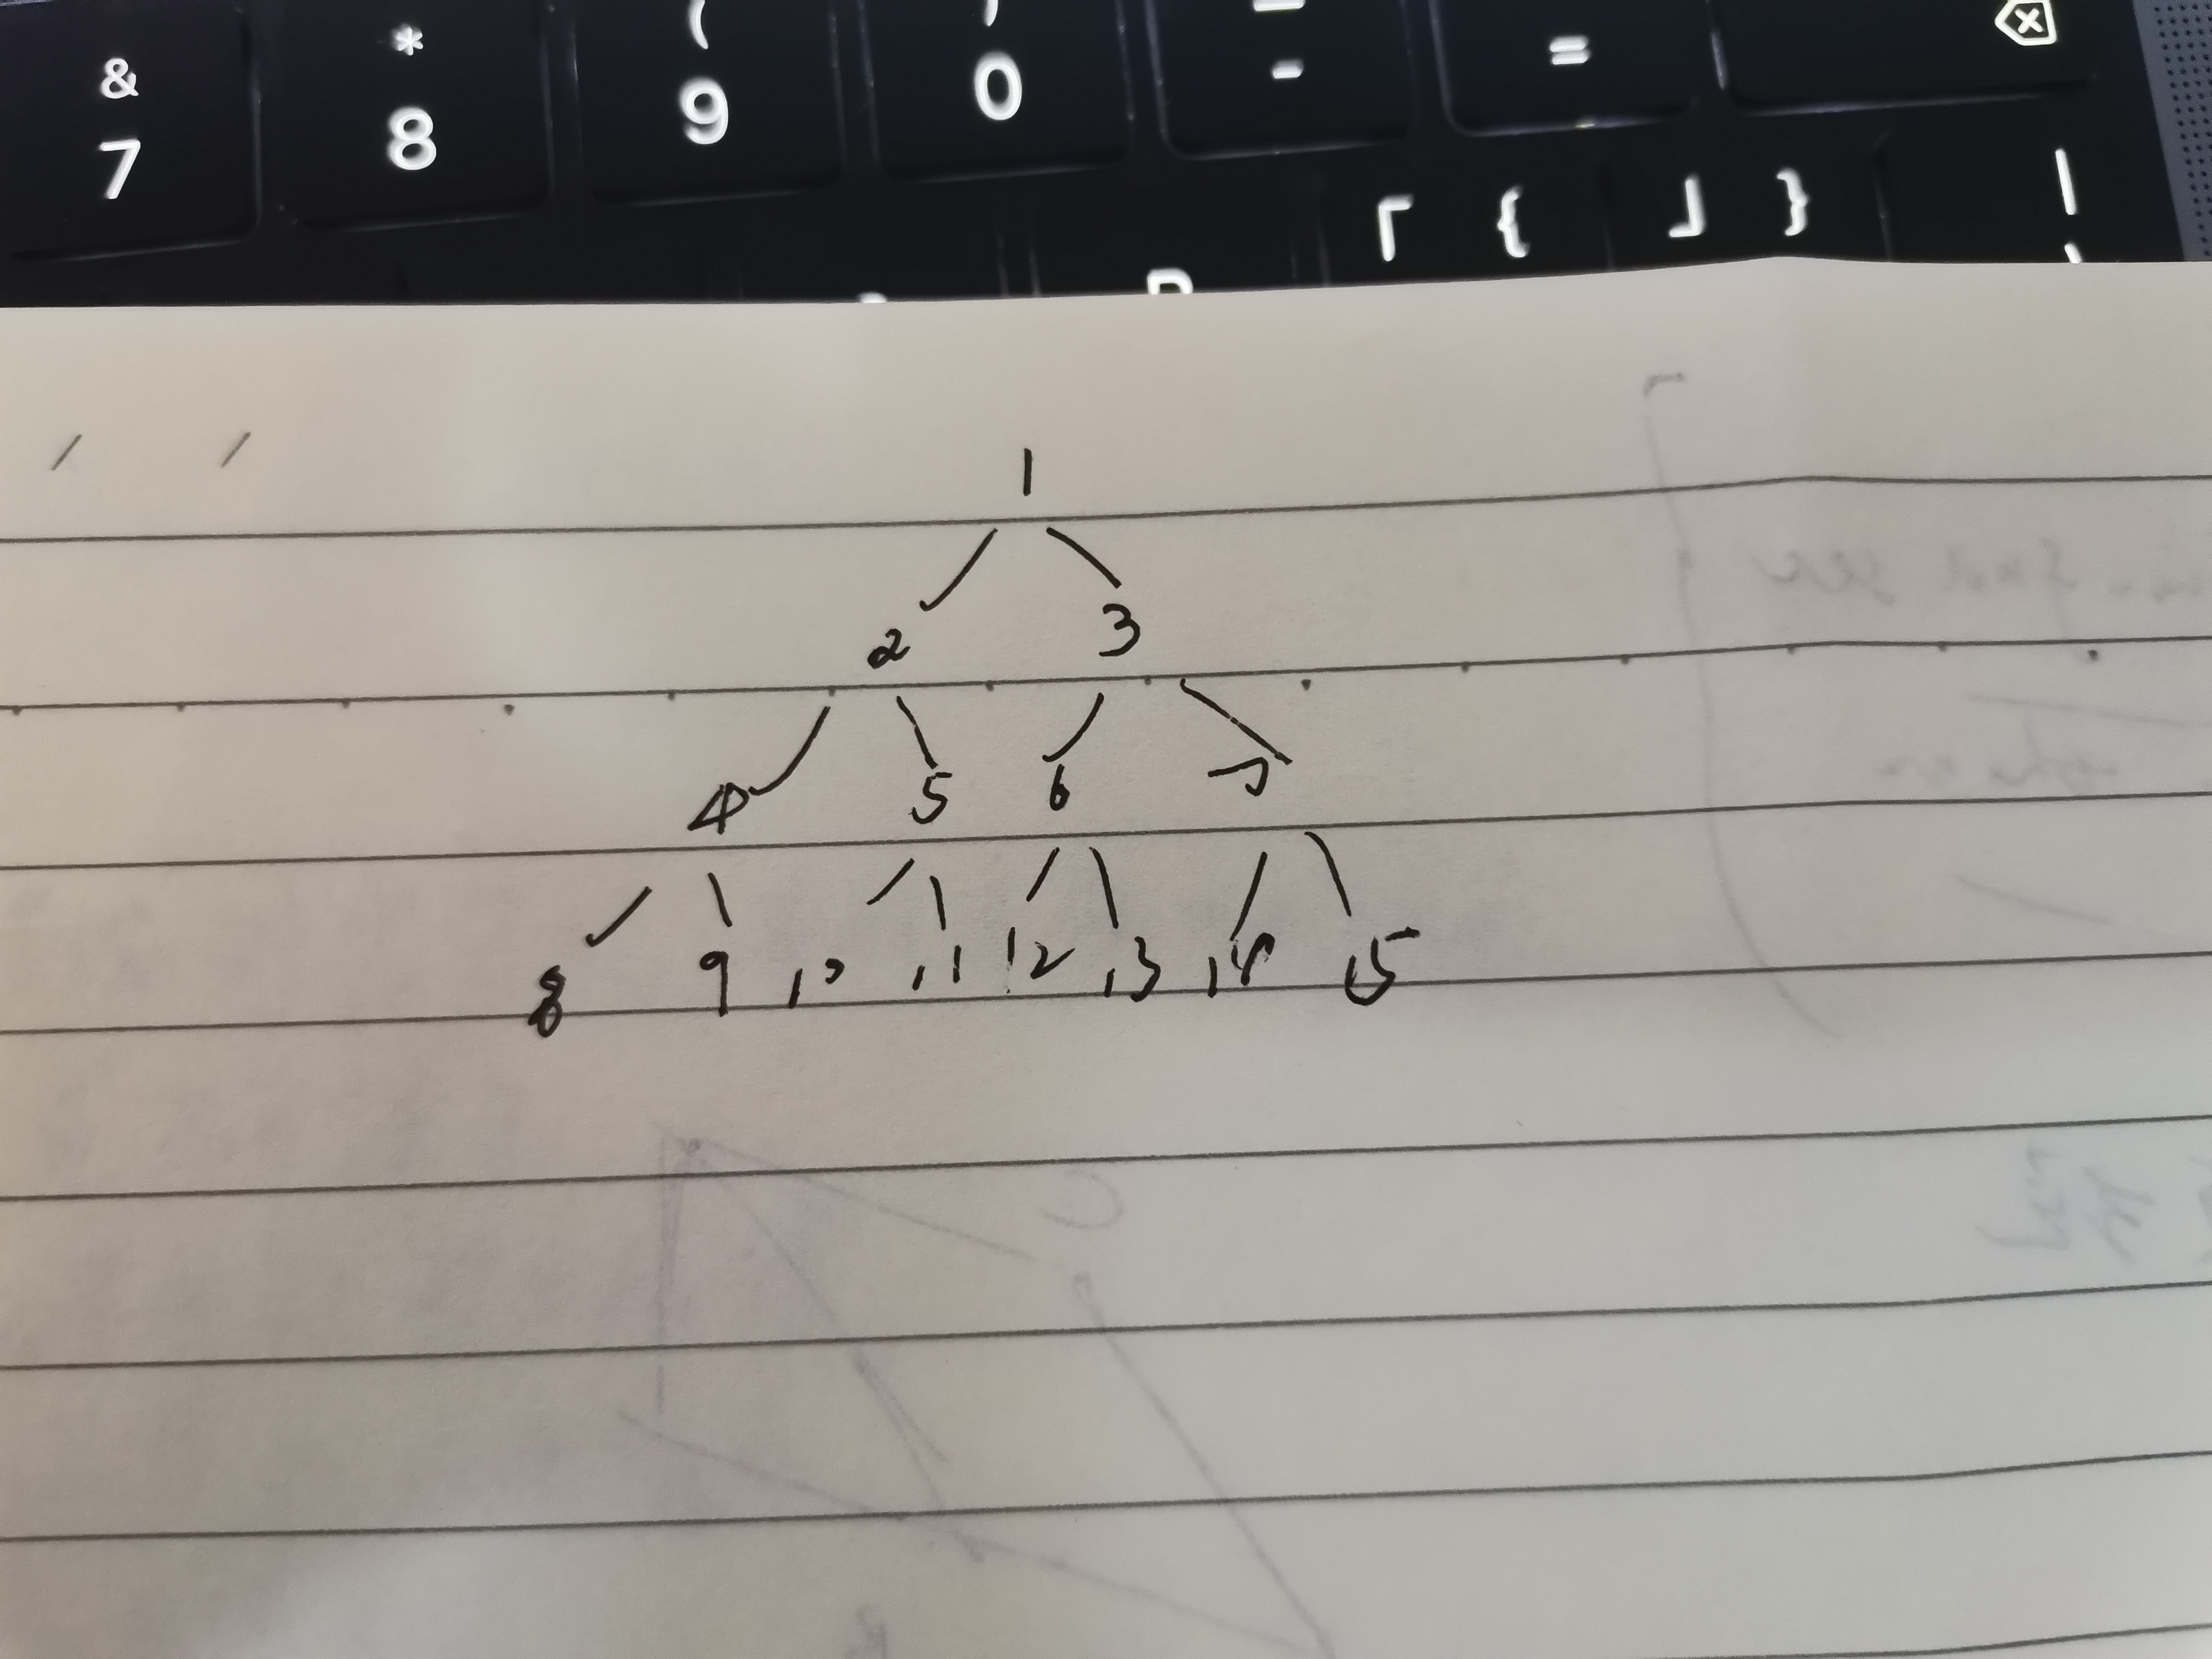 & * ( )
7 8 9 0 - =
{ }
1
2 3
4 5 6 7
8 9 10 11 12 13 14 15